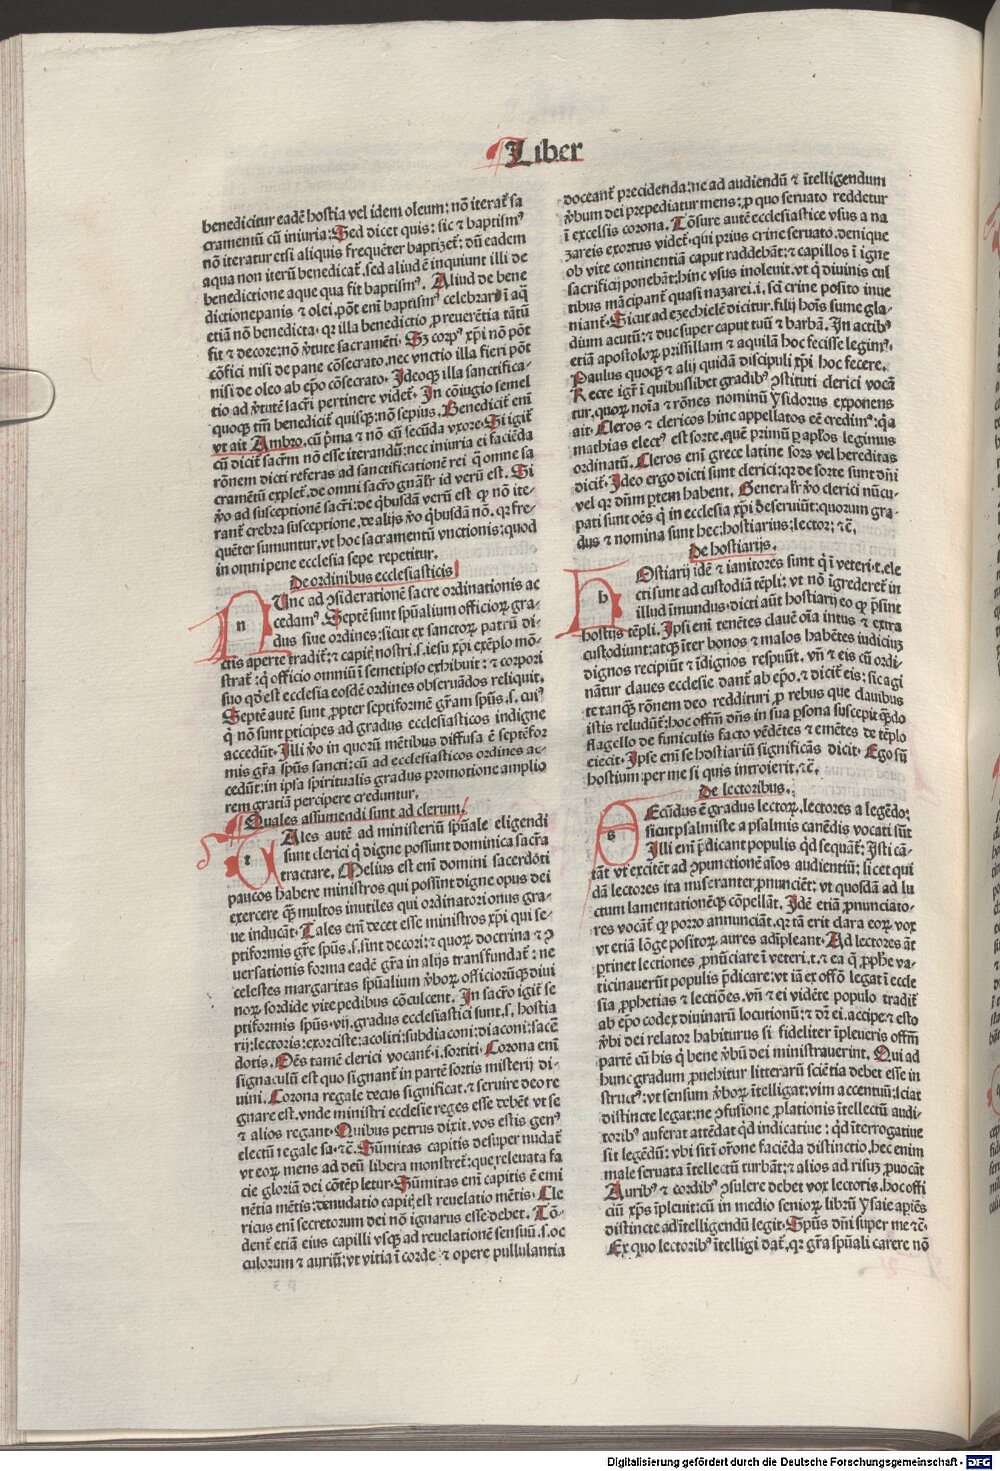 Liber
benedicitur eadē hostia vel idem oleum: nō iterat᷑ sa
cramentū cū iniuria: Sed dicet quis: sic ⁊ baptism⁹
nō iteratur etsi aliquis frequēter baptizet᷑: dū eadem
aqua non iterū benedicat᷑. sed aliud ē inquiunt illi de
benedictione aque qua fit baptism⁹. Aliud de bene
dictione panis ⁊ olei. pōt enī baptism⁹ celebrari ī aq̄
etiā nō benedicta. qꝛ illa benedictio ꝓ reuerētia tātū
fit ⁊ decore: nō v̄tute sacramēti. Sꝫ corp⁹ xp̄i nō pōt
cōfici nisi de pane cōsecrato. nec vnctio illa fieri pōt
nisi de oleo ab ep̄o cōsecrato. Ideoqꝫ illa sanctifica-
tio ad v̄tutē sacr̄i pertinere videt᷑. In cōiugio semel
quoqꝫ tm̄ benedicit᷑ quisqꝫ: nō sepius. Benedicit᷑ enī
vt ait Ambro. cū p̄ma ⁊ nō cū secūda vxore. Si igit᷑
cū dicit᷑ sacr̄m nō esse iterandū: nec iniuria ei faciēda
rōnem dicti referas ad sanctificationē rei q̄ omne sa
cramētū explet᷑. de omni sacr̄o gnāl̄r id verū est. Si
v̄o ad susceptionē sacr̄i: de q̇busdā verū est ꝙ nō ite-
rant᷑ crebra susceptione. de alijs v̄o q̇busdā nō. qꝛ fre-
quēter sumuntur. vt hoc sacramentū vnctionis: quod
in omni pene ecclesia sepe repetitur.
De ordinibus ecclesiasticis
n Unc ad ꝯsiderationē sacre ordinationis ac
cedam⁹. Septē sunt sp̄ualium officioꝝ gra-
dus siue ordines: sicut ex sanctoꝝ patrū di-
ctis aperte tradit᷑: ⁊ capit̄ nostri. s. iesu xp̄i exēplo mō-
strat᷑: q̇ officio omniū ī semetipso exhibuit: ⁊ corpori
suo qd̓ est ecclesia eosdē ordines obseruādos reliquit.
Septē autē sunt ꝓpter septiformē gr̄am sp̄us. s. cui⁹
q̇ nō sunt ꝑticipes ad gradus ecclesiasticos indigne
accedūt. Illi v̄o in quorū mētibus diffusa ē septēfor
mis gr̄a sp̄us sancti: cū ad ecclesiasticos ordines ac-
cedūt: in ipsa spiritualis gradus promotione amplio
rem gratiā percipere creduntur.
Quales assumendi sunt ad clerum.
t Ales autē ad ministeriū sp̄uale eligendi
sunt clerici q̇ digne possunt dominica sacr̄a
tractare. Melius est enī domini sacerdoti
paucos habere ministros qui possint digne opus dei
exercere q̄ꝫ multos inutiles qui ordinatori onus gra-
ue inducāt. Tales enī decet esse ministros xp̄i qui se-
ptiformis gr̄e sp̄us. s. sint decori: ⁊ quoꝝ doctrina ⁊ ꝯ
uersationis forma eadē gr̄a in alijs transfundat᷑: ne
celestes margaritas sp̄ualium v̄boꝝ officiorūqꝫ diui
noꝝ sordide vite pedibus cōculcent. In sacr̄o igit᷑ se
ptiformis sp̄us. vij. gradus ecclesiastici sunt. s. hostia
rij: lectoris: exorciste: acoliti: subdiaconi: diaconi: sacē
dotis. Oēs tamē clerici vocant᷑. i. sortiti. Corona enī
signaculū est quo signant᷑ in partē sortis misterij di-
uini. Corona regale decus significat. ⁊ seruire deo re
gnare est. vnde ministri ecclesie reges esse debēt vt se
⁊ alios regant. Quibus petrus dixit. vos estis gen⁹
electū regale sa. ⁊c̄. Sūmitas capitis desuper nudat᷑
vt eoꝝ mens ad deū libera monstret᷑: que reuelata fa
cie gloriā dei cōtēpletur. Sūmitas enī capitis ē emi
nētia mētis: denudatio capit̄ est reuelatio mētis. Cle
ricus enī secretorum dei nō ignarus esse debet. Tō-
dent᷑ etiā eius capilli vsqꝫ ad reuelationē sensuū. s. oc
culorum ⁊ auriū: vt vitia ī corde ⁊ opere pullulantia
doceant᷑ precidenda: ne ad audiendū ⁊ ītelligendum
v̄bum dei prepediatur mens: ꝓ quo seruato reddetur
ī excelsis corona. Tōsure autē ecclesiastice vsus a na
zareis exortus videt᷑. qui prius crine seruato. denique
ob vite continentiā caput raddebāt: ⁊ capillos ī igne
sacrificij ponebāt: hinc vsus inoleuit. vt q̇ diuinis cul
tibus mācipant᷑ quasi nazarei. i. sc̄i crine posito inue
niant᷑. Sicut ad ezechielē dicitur. fili hoīs sume gla-
dium acutū: ⁊ duc super caput tuū ⁊ barbā. In actib⁹
etiā apostoloꝝ prissillam ⁊ aquilā hoc fecisse legim⁹.
Paulus quoqꝫ ⁊ alij quidā discipuli xp̄i hoc fecere.
Recte igr̄ ī quibuslibet gradib⁹ ꝯstituti clerici vocā
tur. quoꝝ noīa ⁊ rōnes nominū Ysidorus exponens
ait. Cleros ⁊ clericos hinc appellatos eē credim⁹: q̄a
mathias elect⁹ est sorte. quē primū ꝑ ap̄los legimus
ordinatū. Cleros enī grece latine sors vel hereditas
dicit᷑. Ideo ergo dicti sunt clerici: qꝛ de sorte sunt dn̄i
vel qꝛ dn̄m ꝑtem habent. Generalr̄ v̄o clerici nūcu-
pati sunt oēs q̇ in ecclesia xp̄i deseruiūt: quorum gra-
dus ⁊ nomina sunt hec: hostiarius: lector: ⁊c̄.
De hostiarijs.
h Ostiarij idē ⁊ ianitores sunt q̇ ī veteri. t. ele
cti sunt ad custodiā tēpli: vt nō īgrederet᷑ in
illud īmundus. dicti aūt hostiarij eo ꝙ p̄sint
hostijs tēpli. Ipsi enī tenētes clauē oīa intus ⁊ extra
custodiunt: atqꝫ īter bonos ⁊ malos habētes iudiciū
dignos recipiūt ⁊ īdignos respuūt. vn̄ ⁊ eis cū ordi-
nātur claues ecclesie dant᷑ ab ep̄o. ⁊ dicit᷑ eis: sic agi
te tanqꝫ rōnem deo reddituri ꝓ rebus que clauibus
istis reludūt: hoc offm̄ dn̄s in sua ꝑsona suscepit qn̄do
flagello de funiculis facto vēdētes ⁊ emētes de tēplo
eiecit. Ipse enī se hostiariū significās dicit. Ego sū
hostium: per me si quis introierit. ⁊c̄.
De lectoribus.
s Ecūdus ē gradus lectoꝝ. lectores a legēdo:
sicut psalmiste a psalmis canēdis vocati sūt
Illi enī p̄dicant populis qd̓ sequat᷑: Isti cā-
tāt vt excitēt ad ꝯpunctionē aīos audientiū: licet qui
dā lectores ita miseranter ꝓnunciēt: vt quosdā ad lu
ctum lamentationēqꝫ cōpellāt. Idē etiā ꝓnunciato-
res vocāt᷑ qꝛ porro annunciāt. qꝛ tā erit dara eoꝝ vox
vt etiā lōge positoꝝ aures adīpleant. Ad lectores aūt
ꝑtinet lectiones ꝓnūciare ī veteri. t. ⁊ ea q̄ ꝓph̄e va-
ticinauerūt populis p̄dicare: vt iā ex offō legat ī eccle
sia ꝓphetias ⁊ lectiōes. vn̄ ⁊ ei vidēte populo tradit᷑
ab ep̄o codex diuinarū locutionū: ⁊ dr̄ ei. accipe: ⁊ esto
v̄bi dei relator habiturus si fideliter īpleueris offm̄
partē cū his q̇ bene v̄bū dei ministrauerint. Qui ad
hunc gradum ꝓuehitur litterarū sciētia debet esse in
struct⁹: vt sensum v̄boꝝ ītelligat: vim accentuū: sciat
distincte legat: ne ꝯfusione ꝓlationis ītellectū audi-
torib⁹ auferat attēdat qd̓ indicatiue: qd̓ īterrogatiue
sit legēdū: vbi sit ī orōne faciēda distinctio. hec enim
male seruata ītellectū turbāt: ⁊ alios ad risuꝫ ꝓuocāt
Aurib⁹ ⁊ cordib⁹ ꝯsulere debet vox lectoris. hoc offi
ciū xp̄s īpleuit: cū in medio senioꝝ librū Ysaie apiēs
distincte ad ītelligendū legit. Spūs dn̄i super me ⁊c̄.
Ex quo lectorib⁹ ītelligi dat᷑. qꝛ gr̄a sp̄uali carere nō
Digitalisierung gefördert durch die Deutsche Forschungsgemeinschaft - DFG